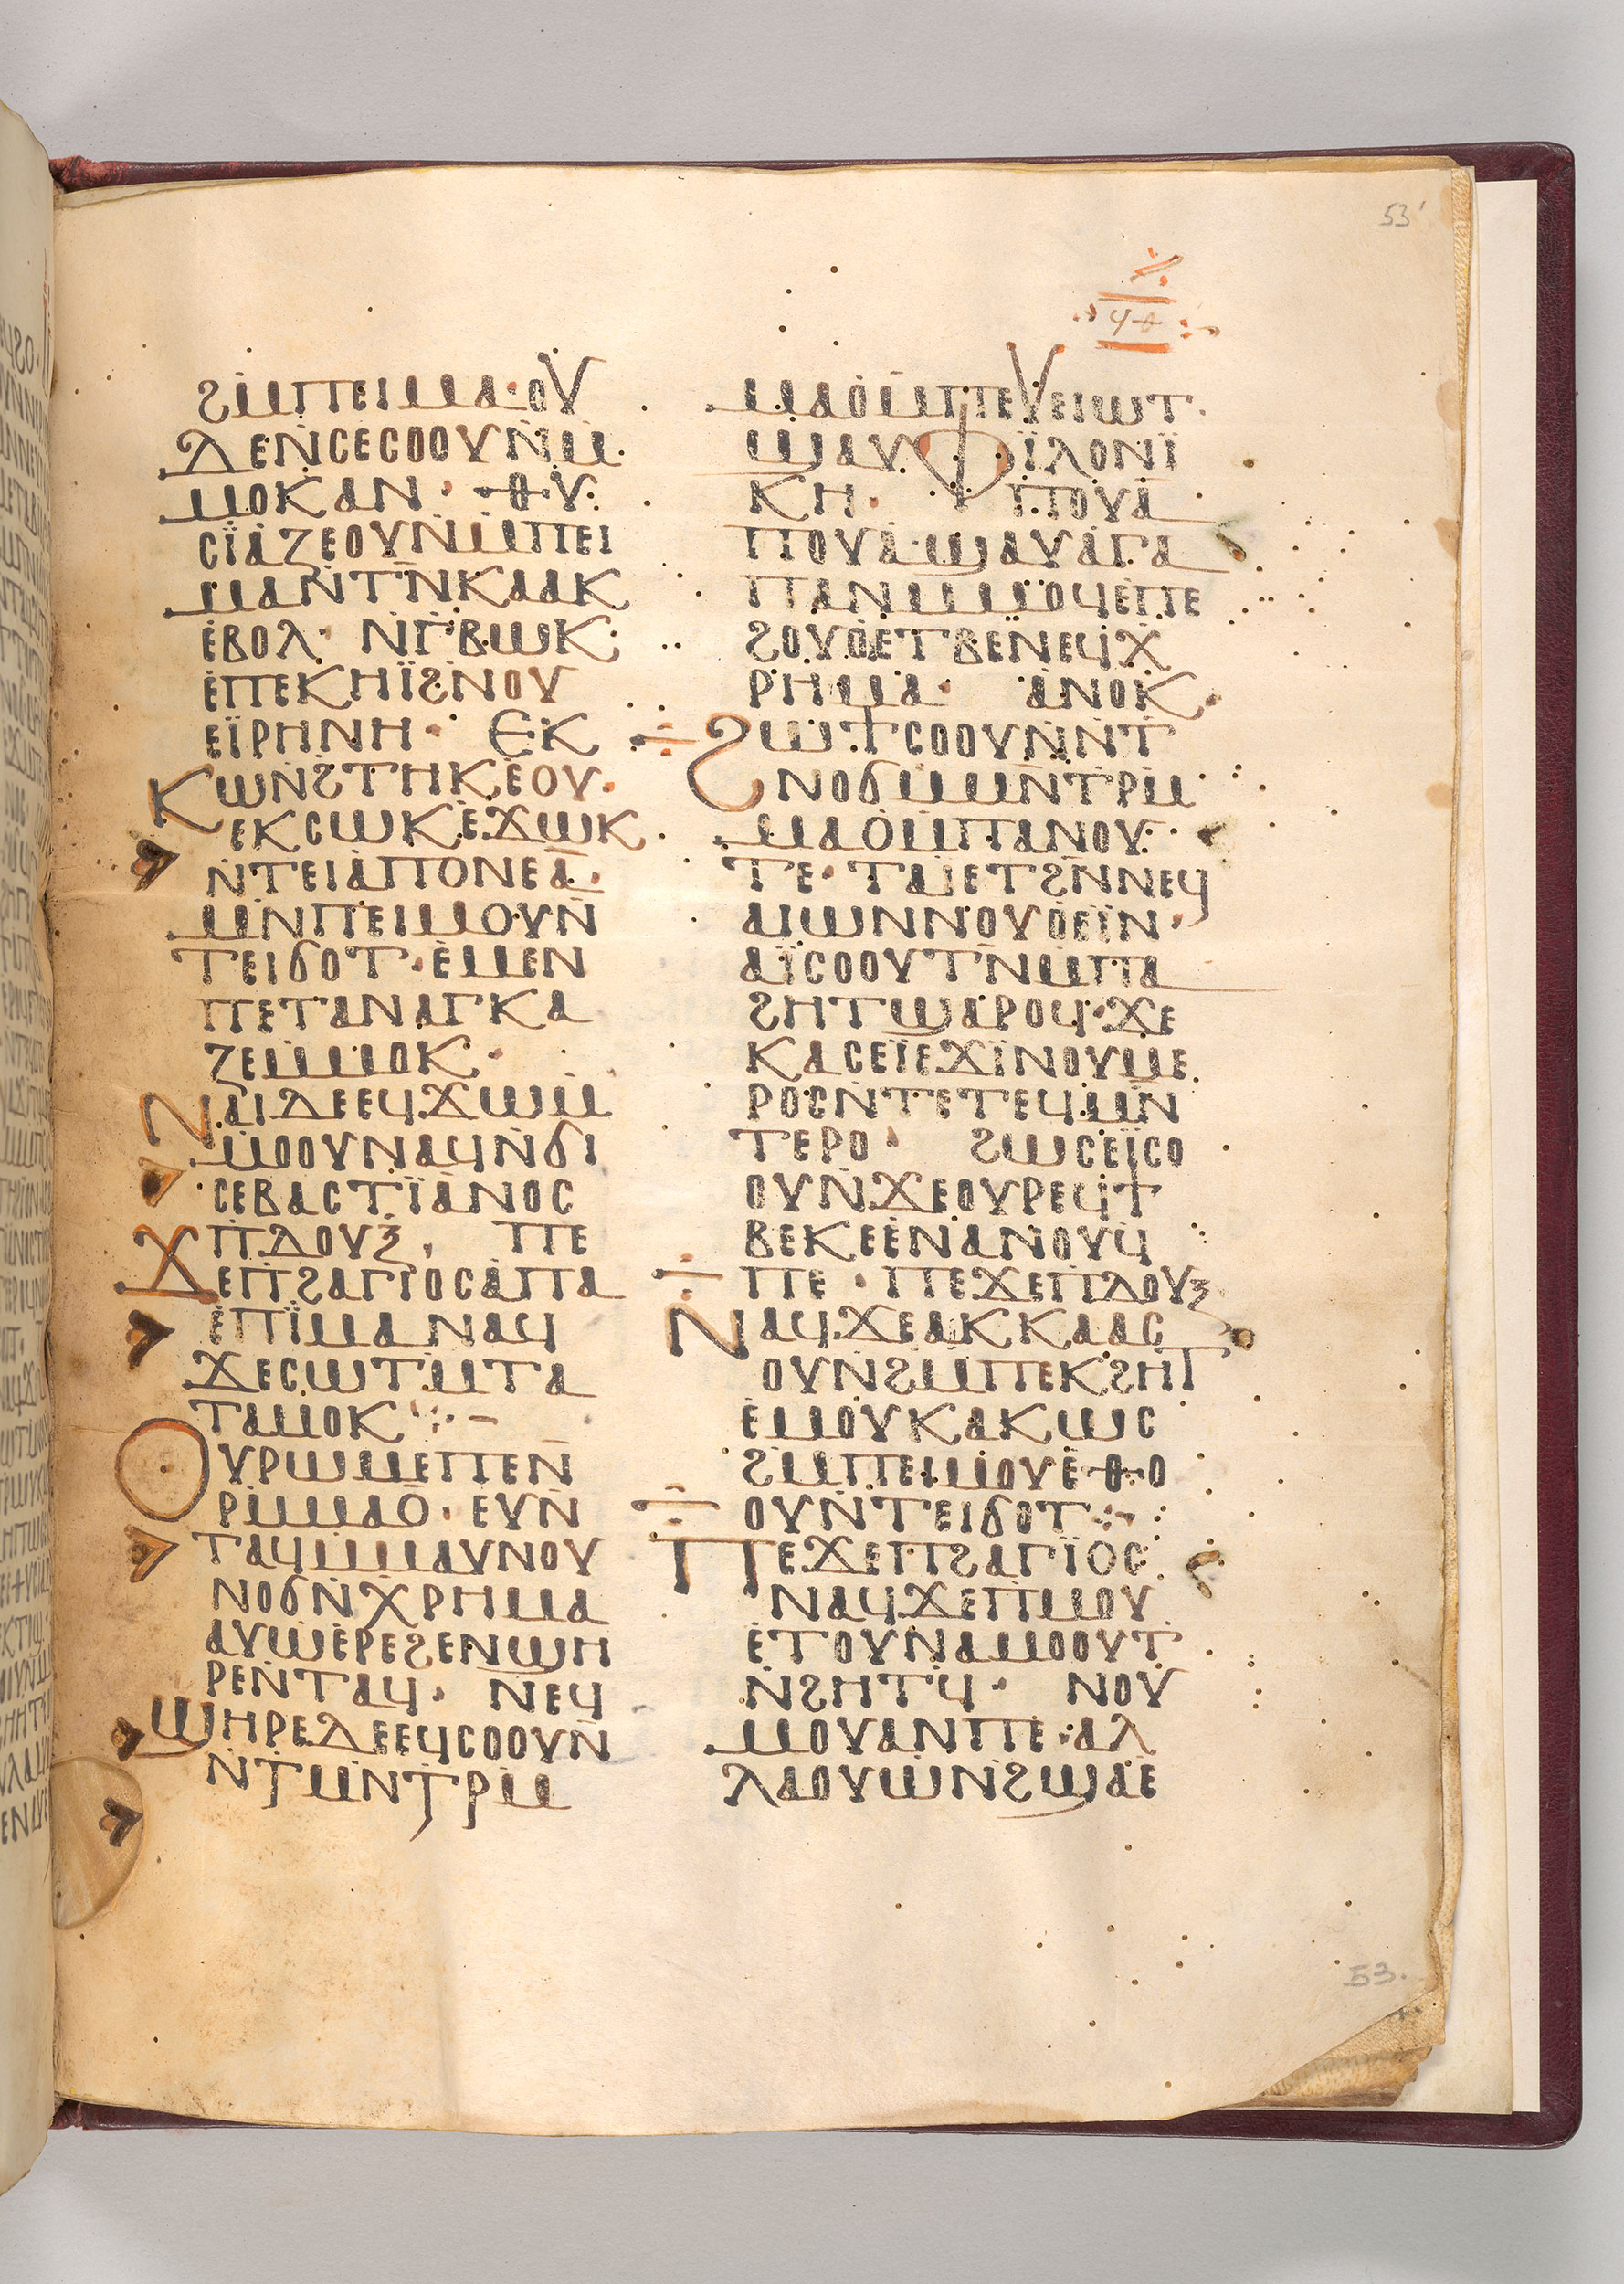 53
ϥⲑ
ϩⲙⲡⲉⲓⲙⲁ· ⲟⲩ
ⲇⲉⲛⲥⲉⲥⲟⲟⲩⲛⲙ
ⲙⲟⲕⲁⲛ· ⲑⲩ
ⲥⲓ̈ⲁⲍⲉⲟⲩⲛⲙⲡⲉⲓ
ⲙⲁⲛⲧⲛ̄ⲕⲁⲁⲕ
ⲉⲃⲟⲗ· ⲛⲅ̄ⲃⲱⲕ
ⲉⲡⲉⲕⲏⲓ̈ϩⲛⲟⲩ
ⲉⲓ̈ⲣⲏⲛⲏ· ⲉⲕ
ⲕⲱⲛϩⲧⲏⲕⲉⲟⲩ·
ⲉⲕⲥⲱⲕⲉϫⲱⲕ
ⲛⲧⲉⲓⲁⲡⲟⲛⲉⲁ̄·
ⲙⲛⲡⲉⲓⲙⲟⲩⲛ
ⲧⲉⲓϭⲟⲧ· ⲉⲙⲉⲛ
ⲡⲉⲧⲁⲛⲁⲅⲕⲁ
ⲍⲉⲙⲙⲟⲕ·
ⲛⲁⲓⲇⲉⲉϥϫⲱⲙ
ⲙⲟⲟⲩⲛⲁϥⲛϭⲓ
ⲥⲉⲃⲁⲥⲧⲓ̈ⲁⲛⲟⲥ
ⲡⲇⲟⲩⲝ, ⲡⲉ
ϫⲉⲡϩⲁⲅⲓⲟⲥⲁⲡⲁ
ⲉⲡⲓ̈ⲙⲁⲛⲁϥ
ϫⲉⲥⲱⲧⲙⲧⲁ
ⲧⲁⲙⲟⲕ ⁘ –
ⲟⲩⲣⲱⲙⲉⲡⲉⲛ̄
ⲣⲙⲙⲁⲟ̄· ⲉⲩⲛ̄
ⲧⲁϥⲙⲙⲁⲩⲛⲟⲩ
ⲛⲟϭⲛⲭⲣⲏⲙⲁ
ⲁⲩⲱⲉⲣⲉϩⲉⲛϣⲏ
ⲣⲉⲛⲧⲁϥ· ⲛⲉϥ
ϣⲏⲣⲉⲇⲉⲉϥⲥⲟⲟⲩⲛ
ⲛⲧⲙⲛⲧⲣⲙ
ⲙⲁⲟⲙⲡⲉⲩⲉⲓⲱⲧ·
ϣⲁⲩⲫⲓ̈ⲗⲟⲛⲓ̈
ⲕⲏ· ⲡⲟⲩⲁ
ⲡⲟⲩⲁ· ϣⲁⲩⲁⲅⲁ
ⲡⲁⲛⲙⲙⲟϥⲉⲡⲉ
ϩⲟⲩⲟⲉⲧⲃⲉⲛⲉϥⲭ
ⲣⲏⲙⲁ· ⲁⲛⲟⲕ
ϩⲱϯⲥⲟⲟⲩⲛⲛⲧ
ⲛⲟϭⲙⲙⲛⲧⲣⲙ
ⲙⲁⲟⲙⲡⲁⲛⲟⲩ
ⲧⲉ· ⲧⲁⲓⲉⲧϩⲛ̄ⲛⲉϥ
ⲁⲓⲱⲛⲛⲟⲩⲟⲉⲓ̈ⲛ·
ⲁⲓ̈ⲥⲟⲟⲩⲧⲛ̄ⲙⲡⲁ
ϩⲏⲧϣⲁⲣⲟϥ· ϫⲉ
ⲕⲁⲥⲉⲓ̈ⲉϫⲓ̈ⲛⲟⲩⲙⲉ
ⲣⲟⲥⲛⲧⲉⲧⲉϥⲙⲛ̄
ⲧⲉⲣⲟ· ϩⲱⲥⲉⲓ̈ⲥⲟ
ⲟⲩⲛϫⲉⲟⲩⲣⲉϥϯ
ⲃⲉⲕⲉⲉⲛⲁⲛⲟⲩϥ
ⲡⲉ· ⲡⲉϫⲉⲡⲇⲟⲩⲝ
ⲛⲁϥϫⲉⲁⲕⲕⲁⲁⲥ
ⲟⲩⲛϩⲙⲡⲉⲕϩⲏⲧ
ⲉⲙⲟⲩⲕⲁⲕⲱⲥ
ϩⲙⲡⲉⲓⲙⲟⲩⲉⲑⲟ
ⲟⲩⲛⲧⲉⲓϭⲟⲧ⁘
ⲡⲉϫⲉⲡϩⲁⲅⲓ̈ⲟⲥ
ⲛⲁϥϫⲉⲡⲙⲟⲩ
ⲉⲧⲟⲩⲛⲁⲙⲟⲟⲩⲧ
ⲛϩⲏⲧϥ· ⲛⲟⲩ
ⲙⲟⲩⲁⲛⲡⲉ· ⲁⲗ
ⲗⲁⲟⲩⲱⲛϩϣⲁⲉ
53.